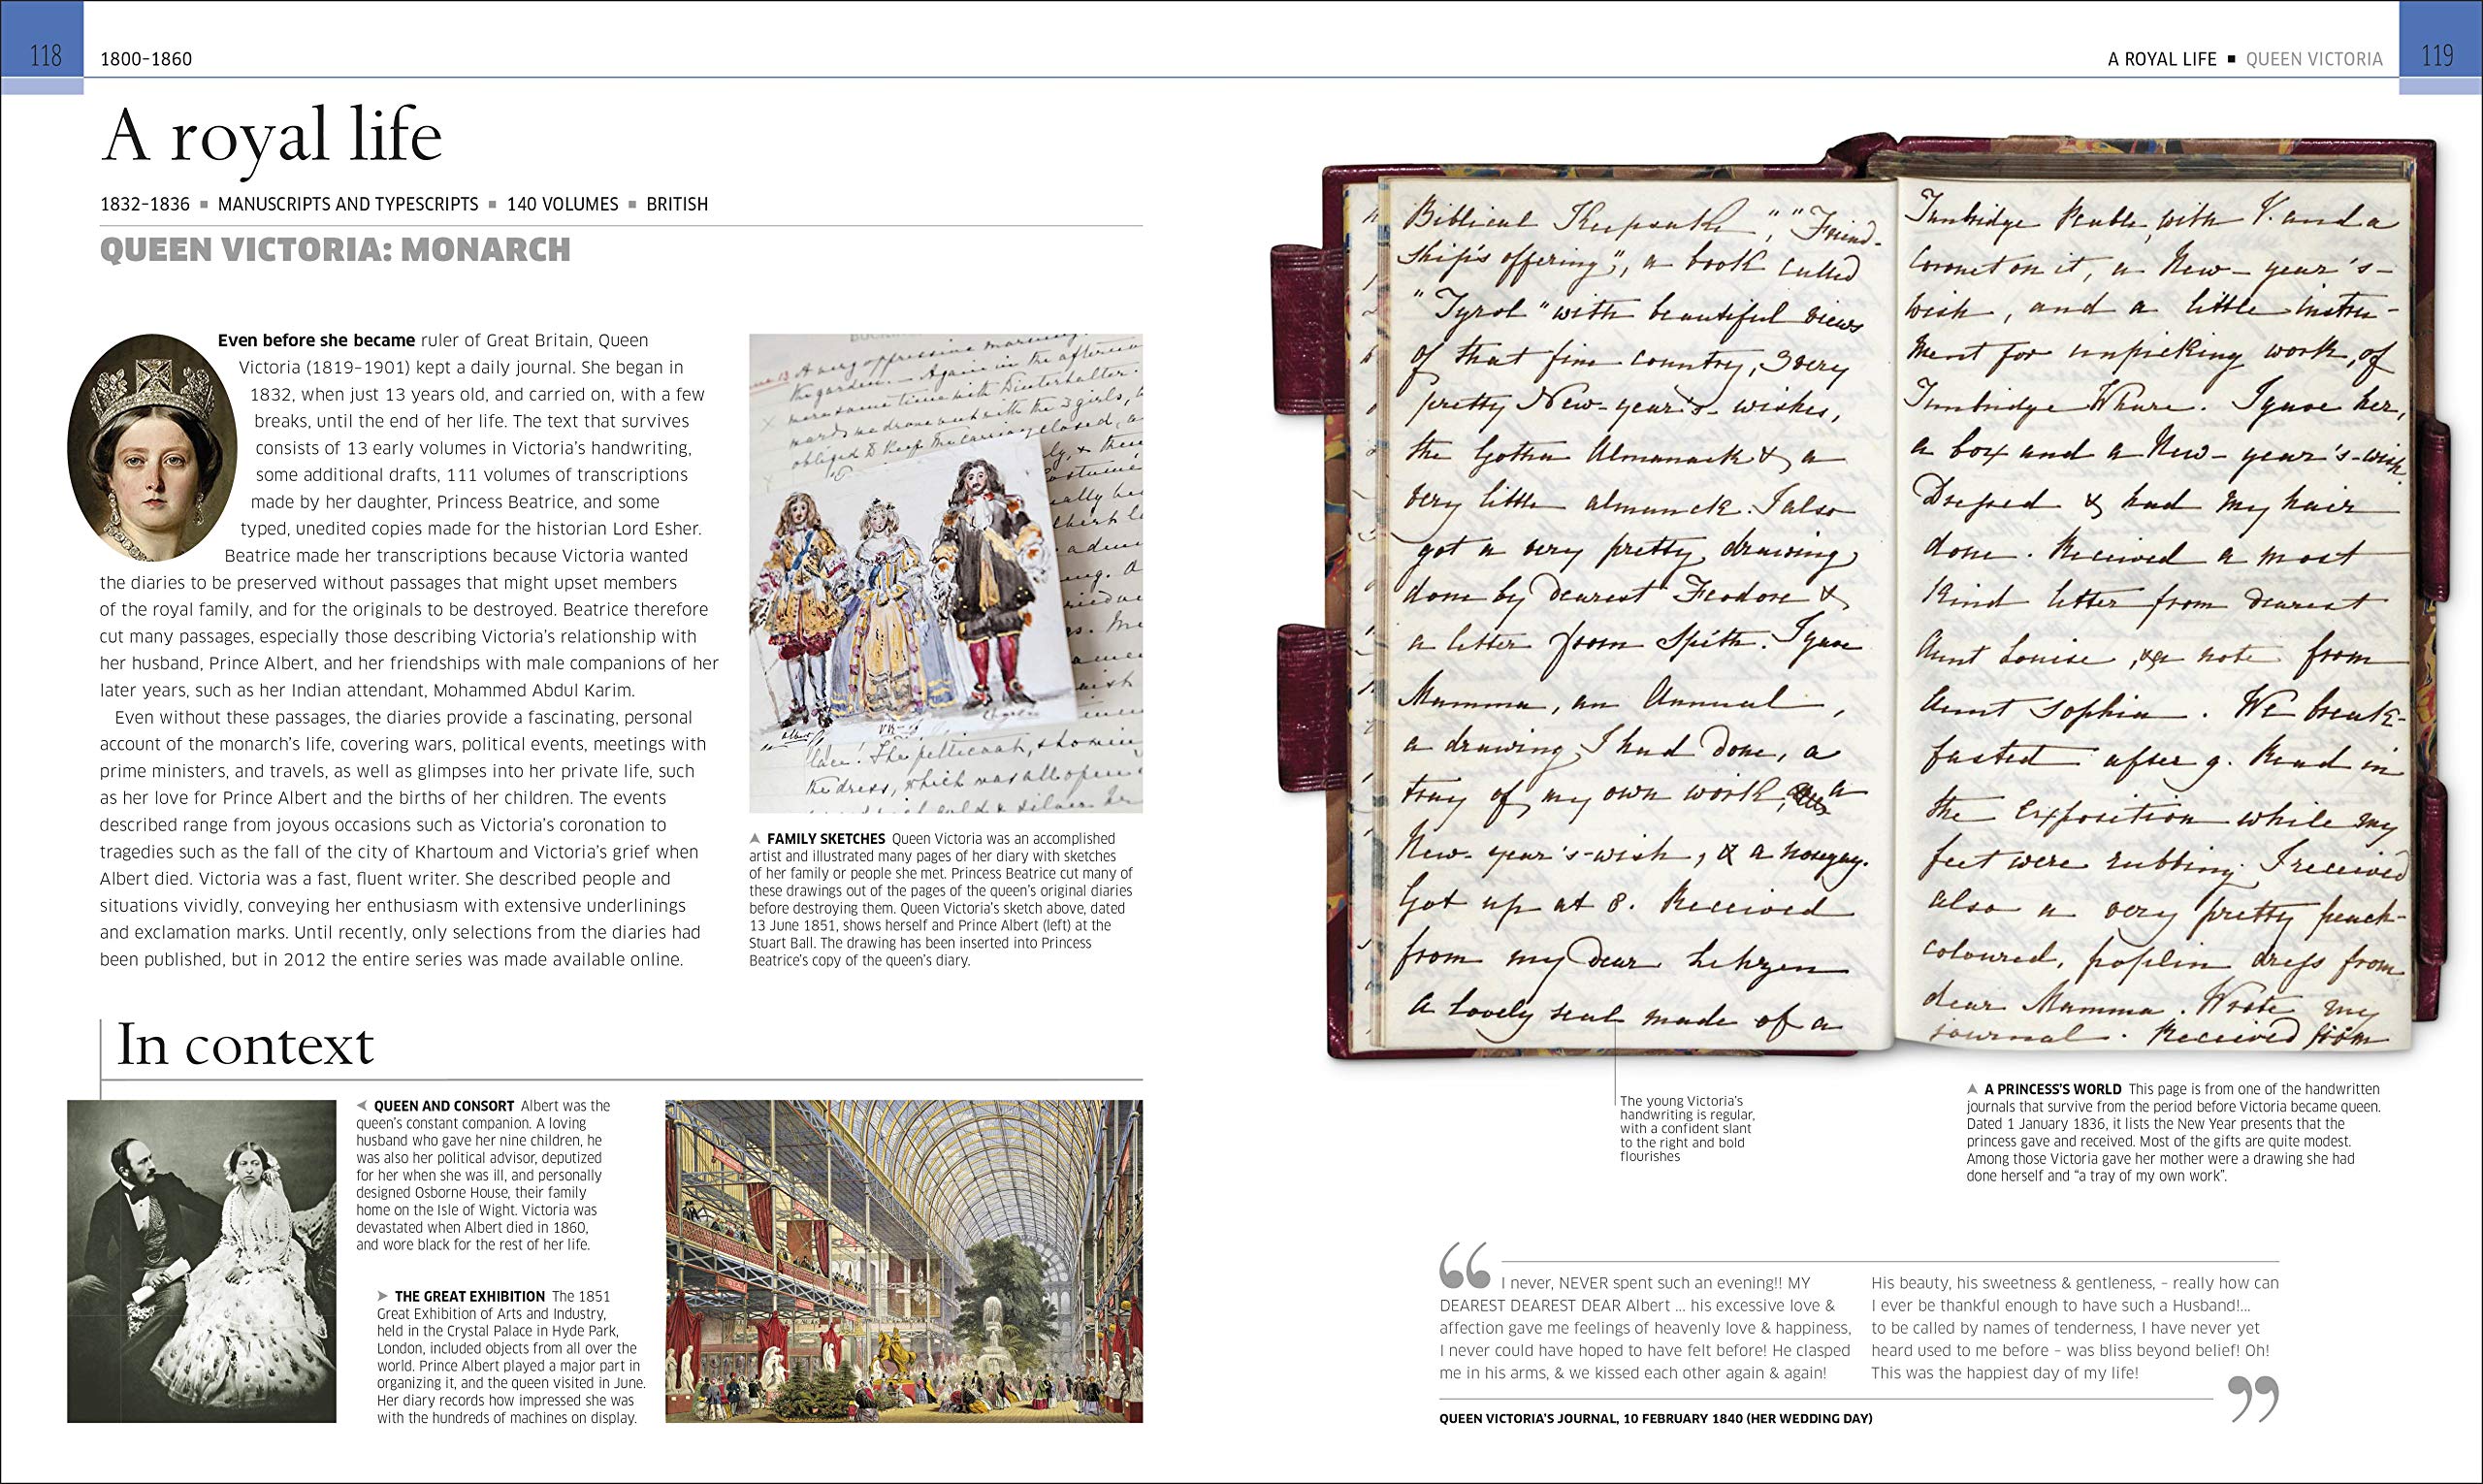 118
1800–1860
A ROYAL LIFE ▪ QUEEN VICTORIA
119
A royal life
1832–1836 ▪ MANUSCRIPTS AND TYPESCRIPTS ▪ 140 VOLUMES ▪ BRITISH
QUEEN VICTORIA: MONARCH
Even before she became ruler of Great Britain, Queen
Victoria (1819–1901) kept a daily journal. She began in
1832, when just 13 years old, and carried on, with a few
breaks, until the end of her life. The text that survives
consists of 13 early volumes in Victoria's handwriting,
some additional drafts, 111 volumes of transcriptions
made by her daughter, Princess Beatrice, and some
typed, unedited copies made for the historian Lord Esher.
Beatrice made her transcriptions because Victoria wanted
the diaries to be preserved without passages that might upset members
of the royal family, and for the originals to be destroyed. Beatrice therefore
cut many passages, especially those describing Victoria's relationship with
her husband, Prince Albert, and her friendships with male companions of her
later years, such as her Indian attendant, Mohammed Abdul Karim.
Even without these passages, the diaries provide a fascinating, personal
account of the monarch's life, covering wars, political events, meetings with
prime ministers, and travels, as well as glimpses into her private life, such
as her love for Prince Albert and the births of her children. The events
described range from joyous occasions such as Victoria's coronation to
tragedies such as the fall of the city of Khartoum and Victoria's grief when
Albert died. Victoria was a fast, fluent writer. She described people and
situations vividly, conveying her enthusiasm with extensive underlinings
and exclamation marks. Until recently, only selections from the diaries had
been published, but in 2012 the entire series was made available online.
A very oppressive morning.
the garden. — Again in the afternoo
more same time with Winterhalter.
wards we drove out with the 3 girls,
obliged to keep the carriage closed, a
lace! The petticoat, showin
the dress, which was all open
FAMILY SKETCHES Queen Victoria was an accomplished
artist and illustrated many pages of her diary with sketches
of her family or people she met. Princess Beatrice cut many of
these drawings out of the pages of the queen's original diaries
before destroying them. Queen Victoria's sketch above, dated
13 June 1851, shows herself and Prince Albert (left) at the
Stuart Ball. The drawing has been inserted into Princess
Beatrice's copy of the queen's diary.
In context
QUEEN AND CONSORT Albert was the
queen's constant companion. A loving
husband who gave her nine children, he
was also her political advisor, deputized
for her when she was ill, and personally
designed Osborne House, their family
home on the Isle of Wight. Victoria was
devastated when Albert died in 1860,
and wore black for the rest of her life.
THE GREAT EXHIBITION The 1851
Great Exhibition of Arts and Industry,
held in the Crystal Palace in Hyde Park,
London, included objects from all over the
world. Prince Albert played a major part in
organizing it, and the queen visited in June.
Her diary records how impressed she was
with the hundreds of machines on display.
Biblical Keepsake", "Friend-
ship's offering", a book called
"Tyrol" with beautiful views
of that fine country, 3 very
pretty New-year's-wishes,
the Gotha Almanack & a
very little almanck. I also
got a very pretty drawing
done by dearest Feodore &
a letter from Späth. I gave
Mamma, an Annual,
a drawing I had done, a
tray of my own work, a
New-year's-wish, & a nosegay.
Got up at 8. Received
from my dear Lehzen
a lovely seal made of a
Tunbridge Peable, with V. and a
Coronet on it, a New-year's-
wish, and a little instru-
ment for unpicking work, of
Tunbridge Whare. I gave her,
a box and a New-year's-wish.
Dressed & had my hair
done. Received a most
kind letter from dearest
Aunt Louise, & a note from
Aunt Sophia. We break-
fasted after 9. Read in
the Exposition while my
feet were rubbing. I received
also a very pretty peach-
coloured, poplin dress from
dear Mamma. Wrote my
journal. Received from
The young Victoria's
handwriting is regular,
with a confident slant
to the right and bold
flourishes
A PRINCESS'S WORLD This page is from one of the handwritten
journals that survive from the period before Victoria became queen.
Dated 1 January 1836, it lists the New Year presents that the
princess gave and received. Most of the gifts are quite modest.
Among those Victoria gave her mother were a drawing she had
done herself and “a tray of my own work”.
“ I never, NEVER spent such an evening!! MY
DEAREST DEAREST DEAR Albert ... his excessive love &
affection gave me feelings of heavenly love & happiness,
I never could have hoped to have felt before! He clasped
me in his arms, & we kissed each other again & again!
His beauty, his sweetness & gentleness, – really how can
I ever be thankful enough to have such a Husband!...
to be called by names of tenderness, I have never yet
heard used to me before – was bliss beyond belief! Oh!
This was the happiest day of my life! ”
QUEEN VICTORIA'S JOURNAL, 10 FEBRUARY 1840 (HER WEDDING DAY)